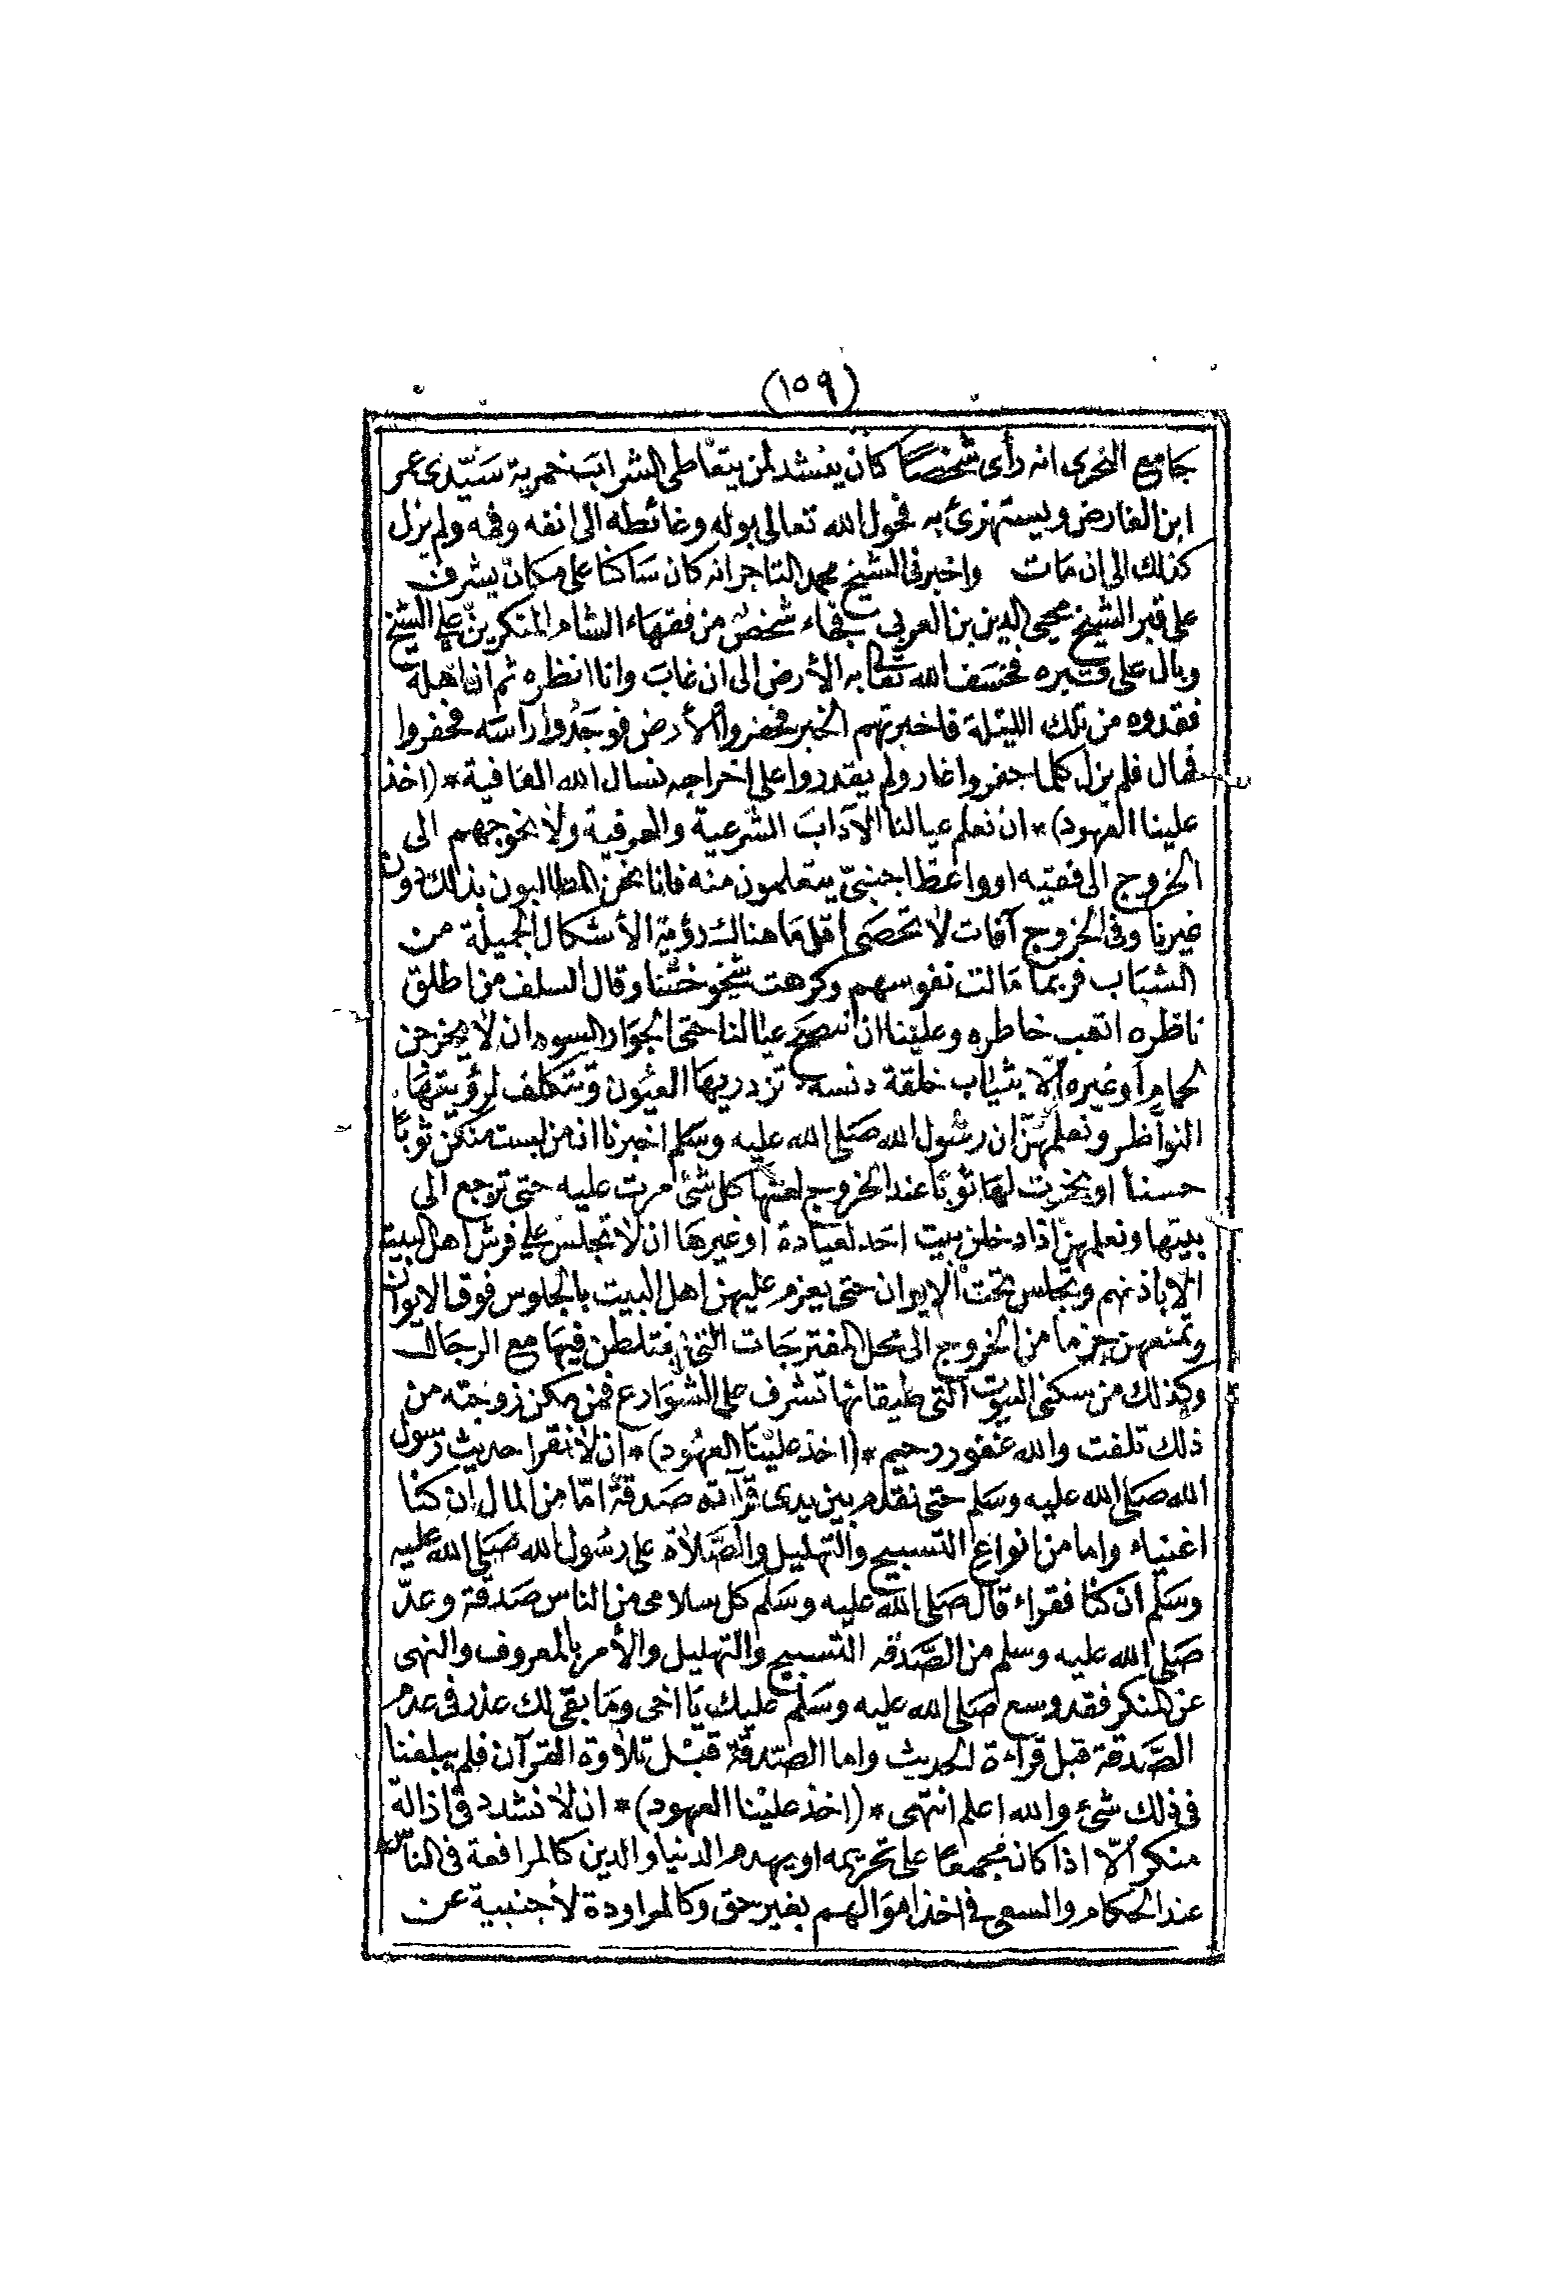 (١٥٩)
جامع الغمرى انه رأى شخصًا كان ينشد لمن يتعاطى الشراب خمرية سيّدى عمر
ابن الفارض ويستهزئ به فحول الله تعالى بوله وغائطه الى انفه وفمه ولم يزل
كذلك الى ان مات واخبرنى الشيخ محمد التاجر انه كان ساكنا على مكان يشرف
على قبر الشيخ محيى الدين بن العربى فجاء شخص من فقهاء الشام المنكرين على الشيخ
وبال على قبره فخسف الله تعا به الأرض الى ان غاب وانا انظره ثم ان اهله
فقدوه من تلك الليلة فاخبرتهم الخبر فحفروا الأرض فوجدوا راسه فحفروا
قال فلم يزل كلما حفروا غار ولم يقدروا على اخراجه نسال الله العافية * (اخذ
علينا العهود) * ان نعلم عيالنا الآداب الشرعية والعرفية ولا نحوجهم الى
الخروج الى فقيه او واعظ اجنبىّ يتعلمون منه فانا نحن المطالبون بذلك دون
غيرنا وفى الخروج آفات لا تحصى اقل ما هنالك رؤية الأشكال الجميلة من
الشباب فربما مالت نفوسهم وكرهت شيخوختنا وقال السلف من اطلق
ناظره اتعب خاطره وعلينا ان ننصح عيالنا حتى الجوار السود ان لا يخرجن
لحمام او غيره الّا بثياب خلقة دنسة تزدريها العيون وتتكلف لرؤيتها
النواظر ونعلمهنّ ان رسول الله صلى الله عليه وسلم اخبرنا ان من لبست منكن ثوبًا
حسنا او بخرت لها ثوبا عند الخروج لعنها كل شئ مرت عليه حتى ترجع الى
بيتها ونعلمهن اذا دخلن بيت احد لعيادة او غيرها ان لا تجلس على فرش اهل البيت
الا باذنهم وتجلس تحت الإيوان حتى يعزم عليهن اهل البيت بالجلوس فوق الايوان
ونمنعهن جزما من الخروج الى محل المفترجات التى يختلطن فيها مع الرجال
وكذلك من سكنى البيوت التى طيقانها تشرف على الشوارع فمن مكن زوجته من
ذلك تلفت والله غفور رحيم * (اخذ علينا العهود) * ان لا نقرا حديث رسول
الله صلى الله عليه وسلم حتى نقدم بين يدى قرآته صدقة امّا من المال ان كنا
اغنياء واما من انواع التسبيح والتهليل والصّلاة على رسول الله صلى الله عليه
وسلم ان كنا فقراء قال صلى الله عليه وسلم كل سلامى من الناس صدقة وعدّ
صلى الله عليه وسلم من الصّدقه التسبيح والتهليل والأمر بالمعروف والنهى
عن المنكر فقد وسع صلى الله عليه وسلم عليك يا اخى وما بقى لك عذر فى عدم
الصّدقة قبل قراءة الحديث واما الصدقة قبل تلاوة القرآن فلم يبلغنا
فى ذلك شئ والله اعلم انتهى * (اخذ علينا العهود) * ان لا نشدد فى ازالة
منكر الّا اذا كان مجمعا على تحريمه او يهدم الدنيا والدين كالمرافعة فى الناس
عند الحكام والسعى فى اخذ اموالهم بغير حق وكالمراودة لأجنبية عن